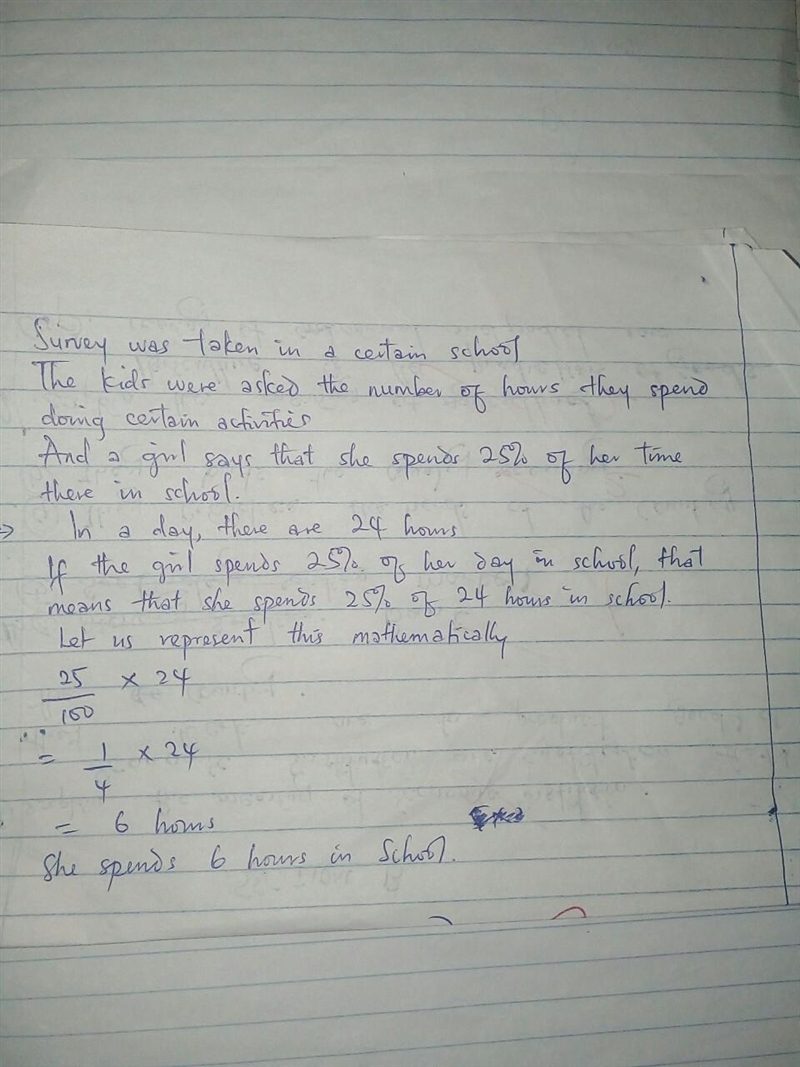 Survey was taken in a certain school
The kids were asked the number of hours they spend
doing certain activities
And a girl says that she spends 25% of her time
there in school.
→ In a day, there are 24 hours
If the girl spends 25% of her day in school, that
means that she spends 25% of 24 hours in school.
Let us represent this mathematically
25/100 × 24
= 1/4 × 24
= 6 hours
She spends 6 hours in School.